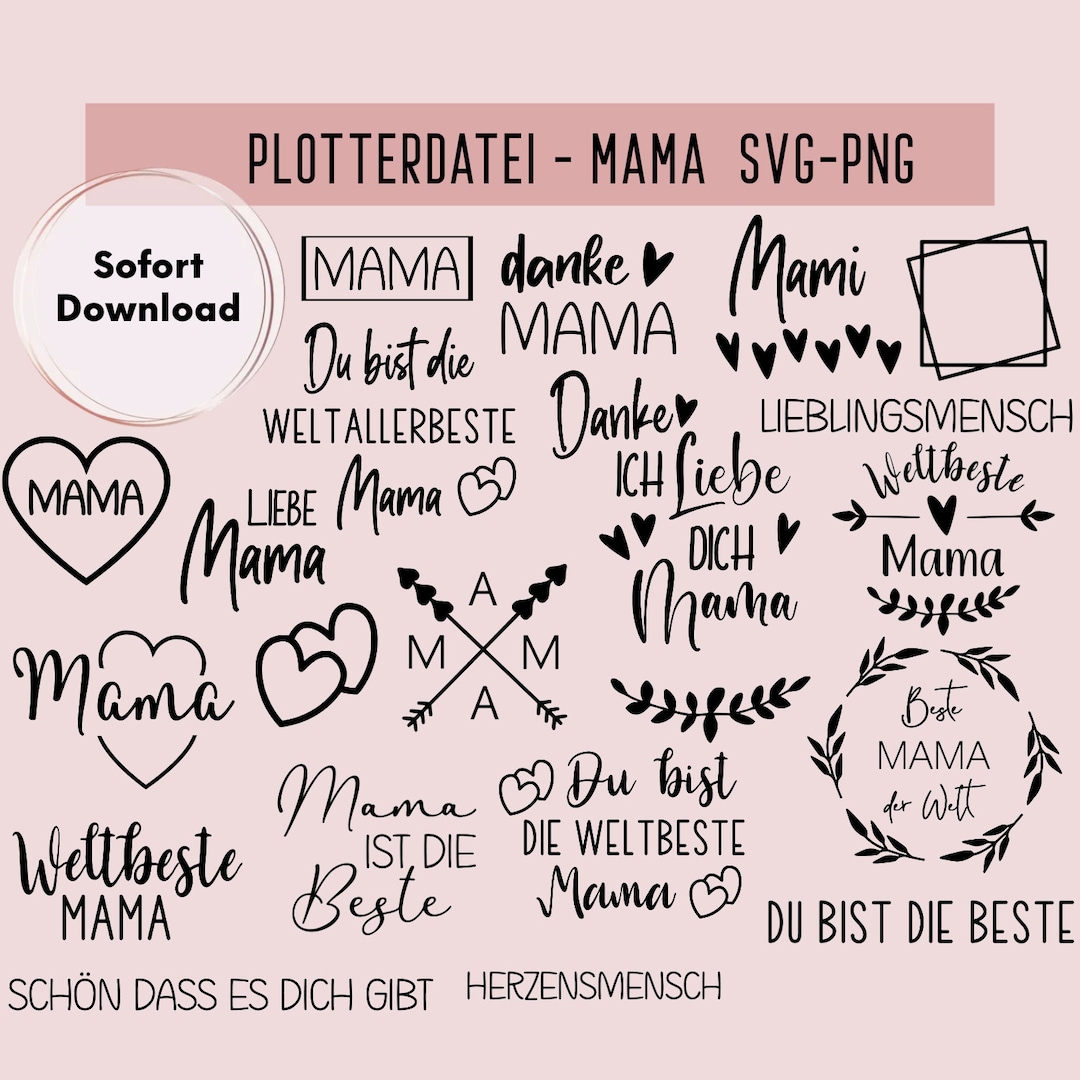 PLOTTERDATEI - MAMA SVG-PNG
Sofort
Download
MAMA
danke
MAMA
Mami
Du bist die
WELTALLERBESTE
Mama
Danke
LIEBLINGSMENSCH
MAMA
LIEBE
Mama
ICH Liebe
DICH
Mama
Weltbeste
Mama
A
M M
A
Mama
Beste
MAMA
der Welt
Mama
IST DIE
Beste
Du bist
DIE WELTBESTE
Mama
Weltbeste
MAMA
DU BIST DIE BESTE
SCHÖN DASS ES DICH GIBT
HERZENSMENSCH